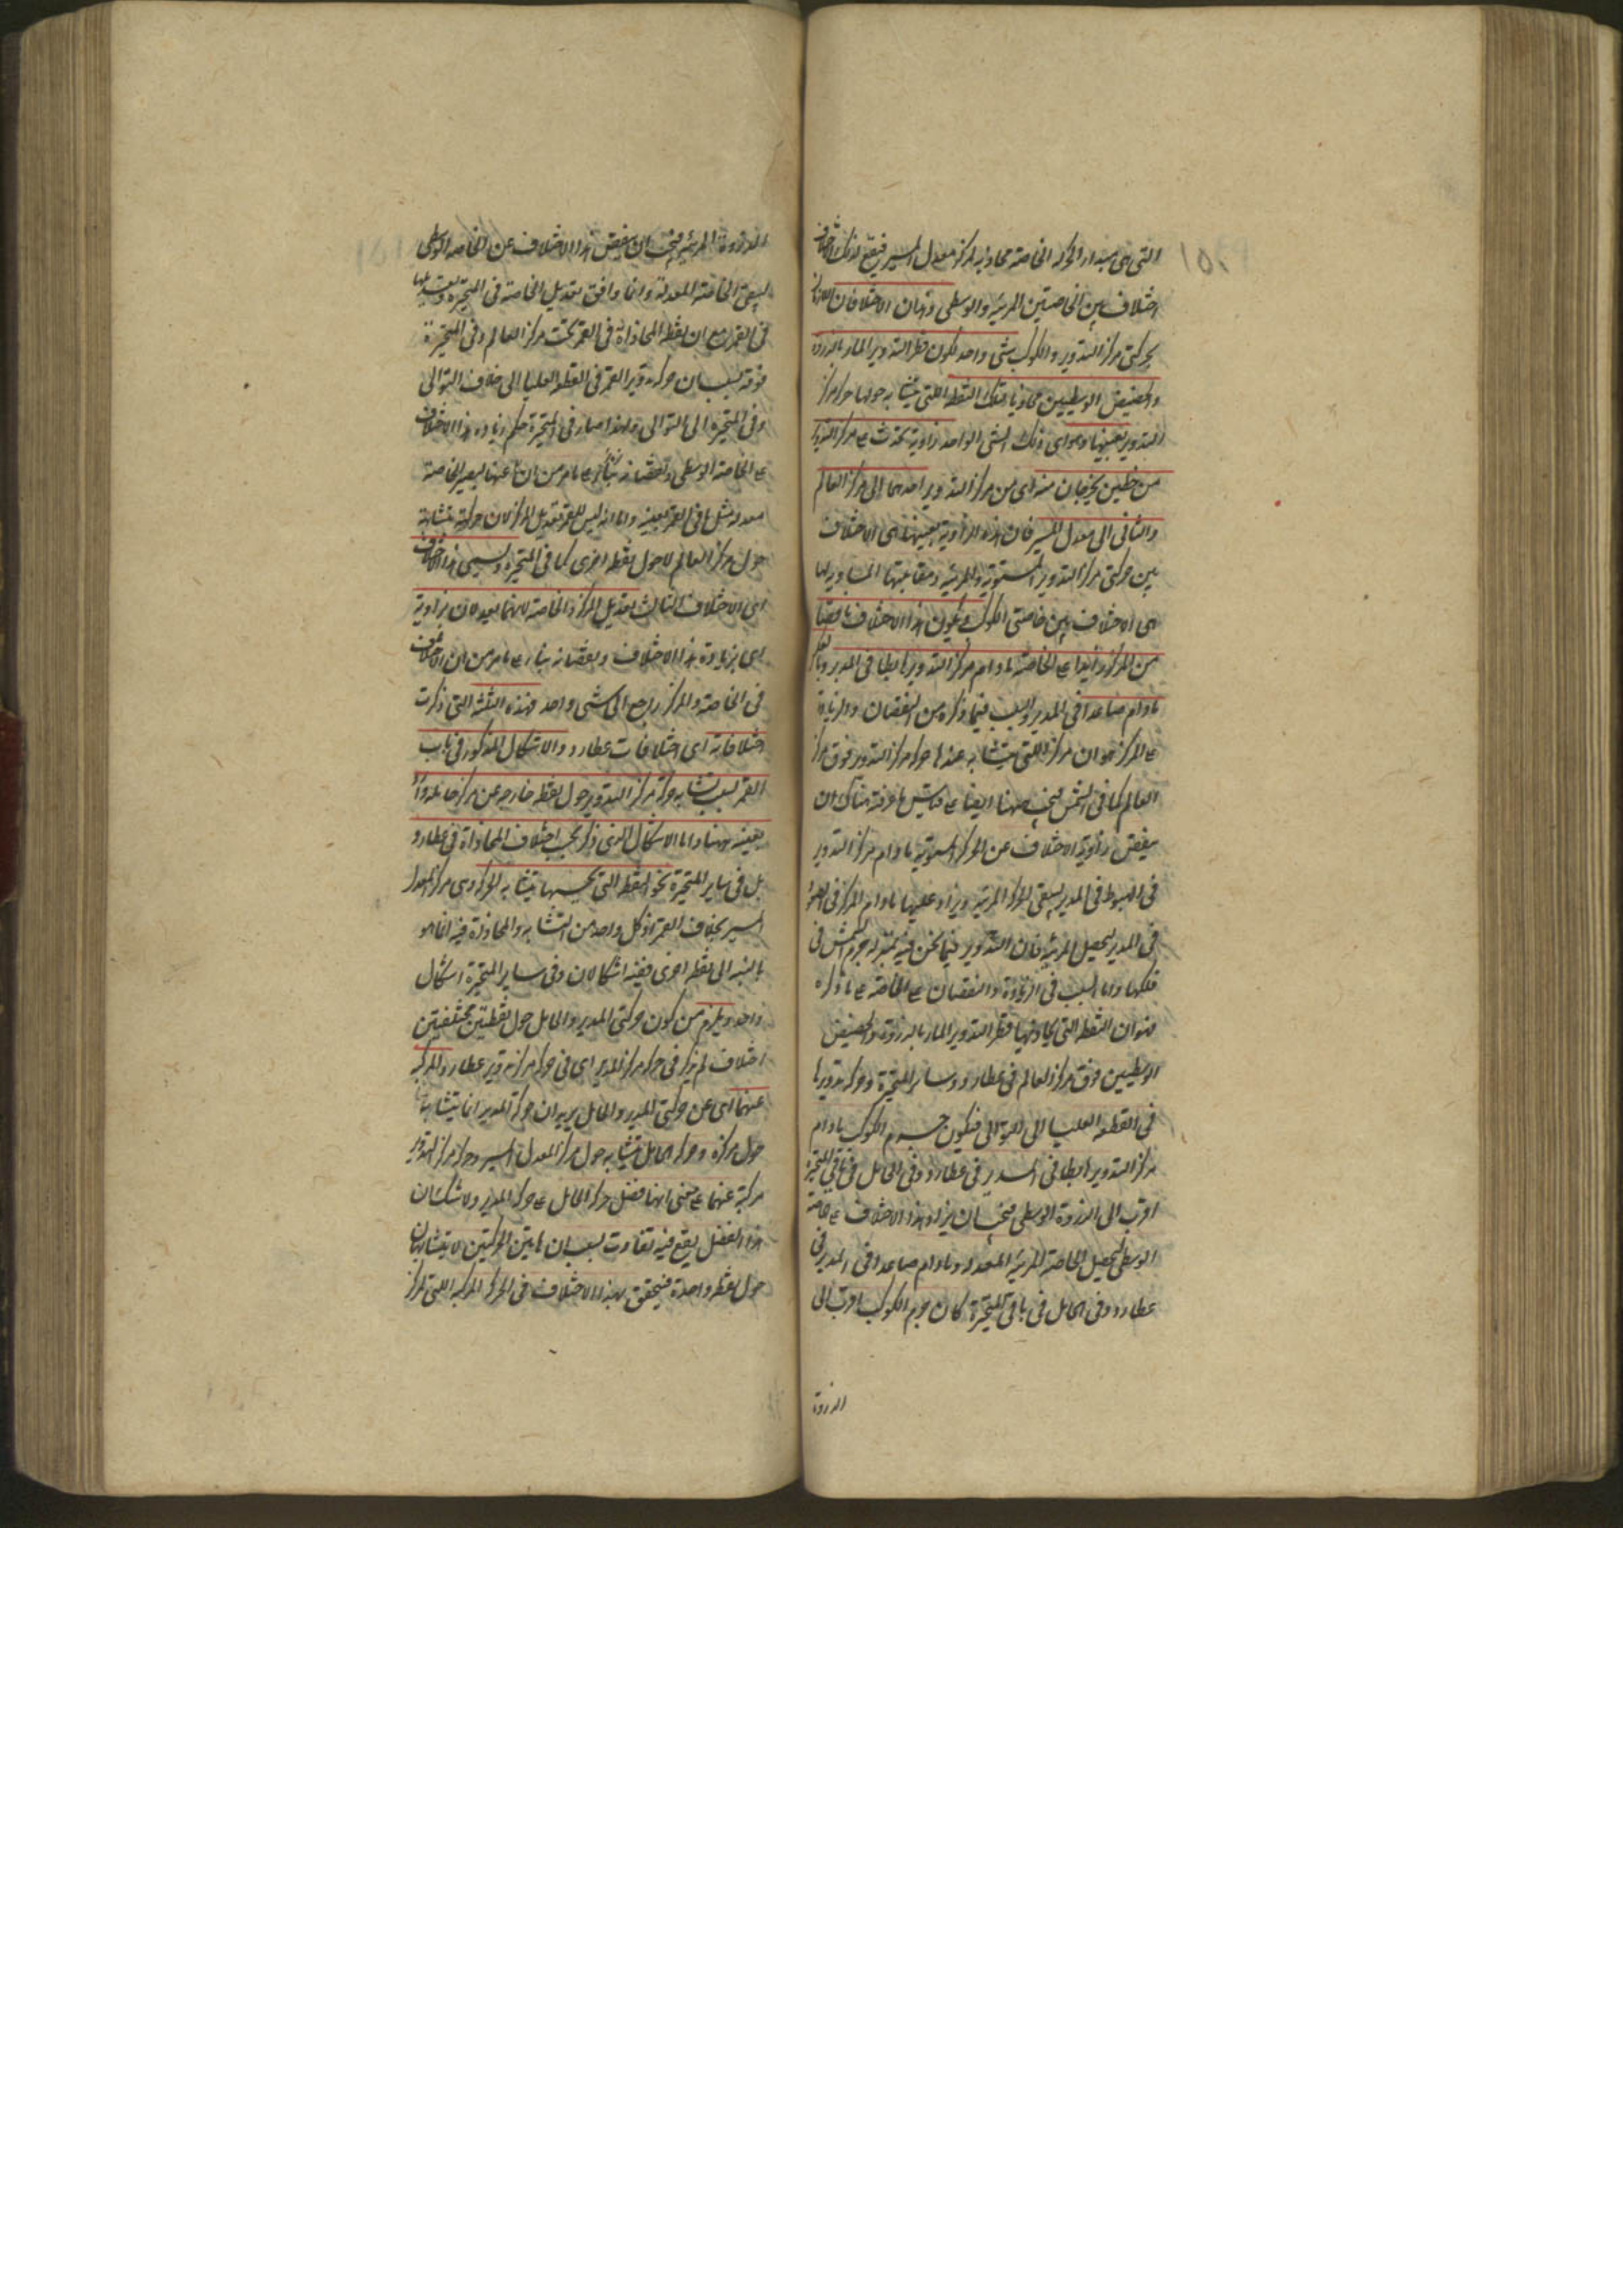 التى هى مبدا الحركه الخاصة محاذيه لمركز معدل المسير فيقع لذلك
اختلاف بين الخاصتين المرئيه والوسطى وهذان الاختلافان
بحركتى مركز التدوير والكوكب شى واحد لكون قطر التدوير المار بالذروة
والحضيض الوسطيين محاذيا لتلك النقطه التى يتشابه حولها حركه مركز
التدوير بعينها وهو اى ذلك الشى الواحد زاوية تحدث على مركز التدوير
من خطين يخرجان منه اى من مركز التدوير احدهما الى مركز العالم
والثانى الى معدل المسير فان هذه الزاوية بعينها هى الاختلاف
بين حركتى مركز التدوير المستوية والمرئيه ومقابلتها المساوية لها
هى الاختلاف بين خاصتى الكوكب ويكون هذا الاختلاف ناقصا
من المركز زايدا على الخاصة مادام مركز التدوير هابطا فى المدير وبالعكس
مادام صاعدا فى المدير والسبب فيما ذكره من النقصان والزيادة
على المركز هو ان مركز التى يتشابه عندها حركه مركز التدوير فوق مركز
العالم كما فى الشمس فيجب ههنا ايضا على قياس ما عرفته هناك ان
ينقص زاوية الاختلاف عن الحركه المستوية مادام مركز التدوير
فى الهبوط فى المدير ليبقى المركز المرئيه ويزاد عليها مادام المركز فى الصعود
فى المدير ليحصل المرئيه فان التدوير فيما نحن فيه بمنزلة جرم الشمس فى
فلكها واما السبب فى الزيادة والنقصان على الخاصة على ما ذكره
فهو ان النقطه التى يحاذيها قطر التدوير المار بالذروة والحضيض
الوسطيين فوق مركز العالم فى عطارد وساير المتحيرة وحركه تدويرها
فى القطعه العليا الى التوالى فيكون جرم الكوكب مادام
مركز التدوير هابطا فى المدير فى عطارد وفى الحامل فى باقى المتحيرة
اقرب الى الذروة الوسطى فيجب ان يزاد هذا الاختلاف على خاصة
الوسطى ليحصل الخاصة المرئيه المعدله ومادام صاعدا فى المدير فى
عطارد وفى الحامل فى باقى المتحيرة كان جرم الكوكب اقرب الى
الذروة
الذروة المرئيه فيجب ان ينقص هذا الاختلاف عن الخاصه الوسطى
ليبقى الخاصة المعدلة وانما وافق تعديل الخاصة فى المتحيرة
فى القمر مع ان نقطه المحاذاة فى القمر تحت مركز العالم وفى المتحيرة
فوقه بسبب ان حركه تدوير القمر فى القطعه العليا الى خلاف التوالى
وفى المتحيرة الى التوالى ولهذا صار فى المتحيرة حكم زيادة هذا الاختلاف
على الخاصة الوسطى ونقصانه بناء على ما مر من ان عنها ليصير الخاصة
معدله مثل ما فى القمر بعينه واما انه ليس للقمر تعديل المركز لان حركته متشابهة
حول مركز العالم لا حول نقطه اخرى كما فى المتحيرة ويسمى هذا الاختلاف
اى الاختلاف الثالث تعديل المركز والخاصة لانهما يعدلان بزاوية
اى بزيادة هذا الاختلاف ونقصانه بناء على ما مر من ان الاختلاف
فى الخاصة والمركز راجع الى شى واحد فهذه الثلثة التى ذكرت
اختلافاته اى اختلافات عطارد والاشكال المذكور فى باب
القمر بسبب تشابه حركة مركز التدوير حول نقطه خارجه عن مركز حامله وارد
بعينه ههنا واما الاشكال الذى ذكر بحسب اختلاف المحاذاة فى عطارد
بل فى ساير المتحيرة نحو النقطه التى بحسبها يتشابه الحركه وهى مركز معدل
المسير بخلاف القمر اذ كل واحد من التشابه والمحاذاة فيه انما هو
بالنسبه الى نقطه اخرى ففيه اشكالان وفى ساير المتحيرة اشكال
واحد ويلزم من كون حركتى المدير والحامل حول نقطتين مختلفتين
اختلاف لم يذكر فى حركه مركز المدير اى فى حركه مركز تدوير عطارد المركبه
عنهما اى عن حركتى المدير والحامل يريد ان حركة المدير انما يتشابه
حول مركزه وحركه الحامل يتشابه حول مركز المعدل المسير وحركه مركز التدوير
مركبة عنهما على معنى انها فضل حركه الحامل على حركه المدير ولا شك ان
هذا الفضل يقع فيه تفاوت بسبب ان هاتين الحركتين لا يتشابهان
حول نقطه واحدة فيتحقق بهذا الاختلاف فى الحركه المركبه التى لمركز